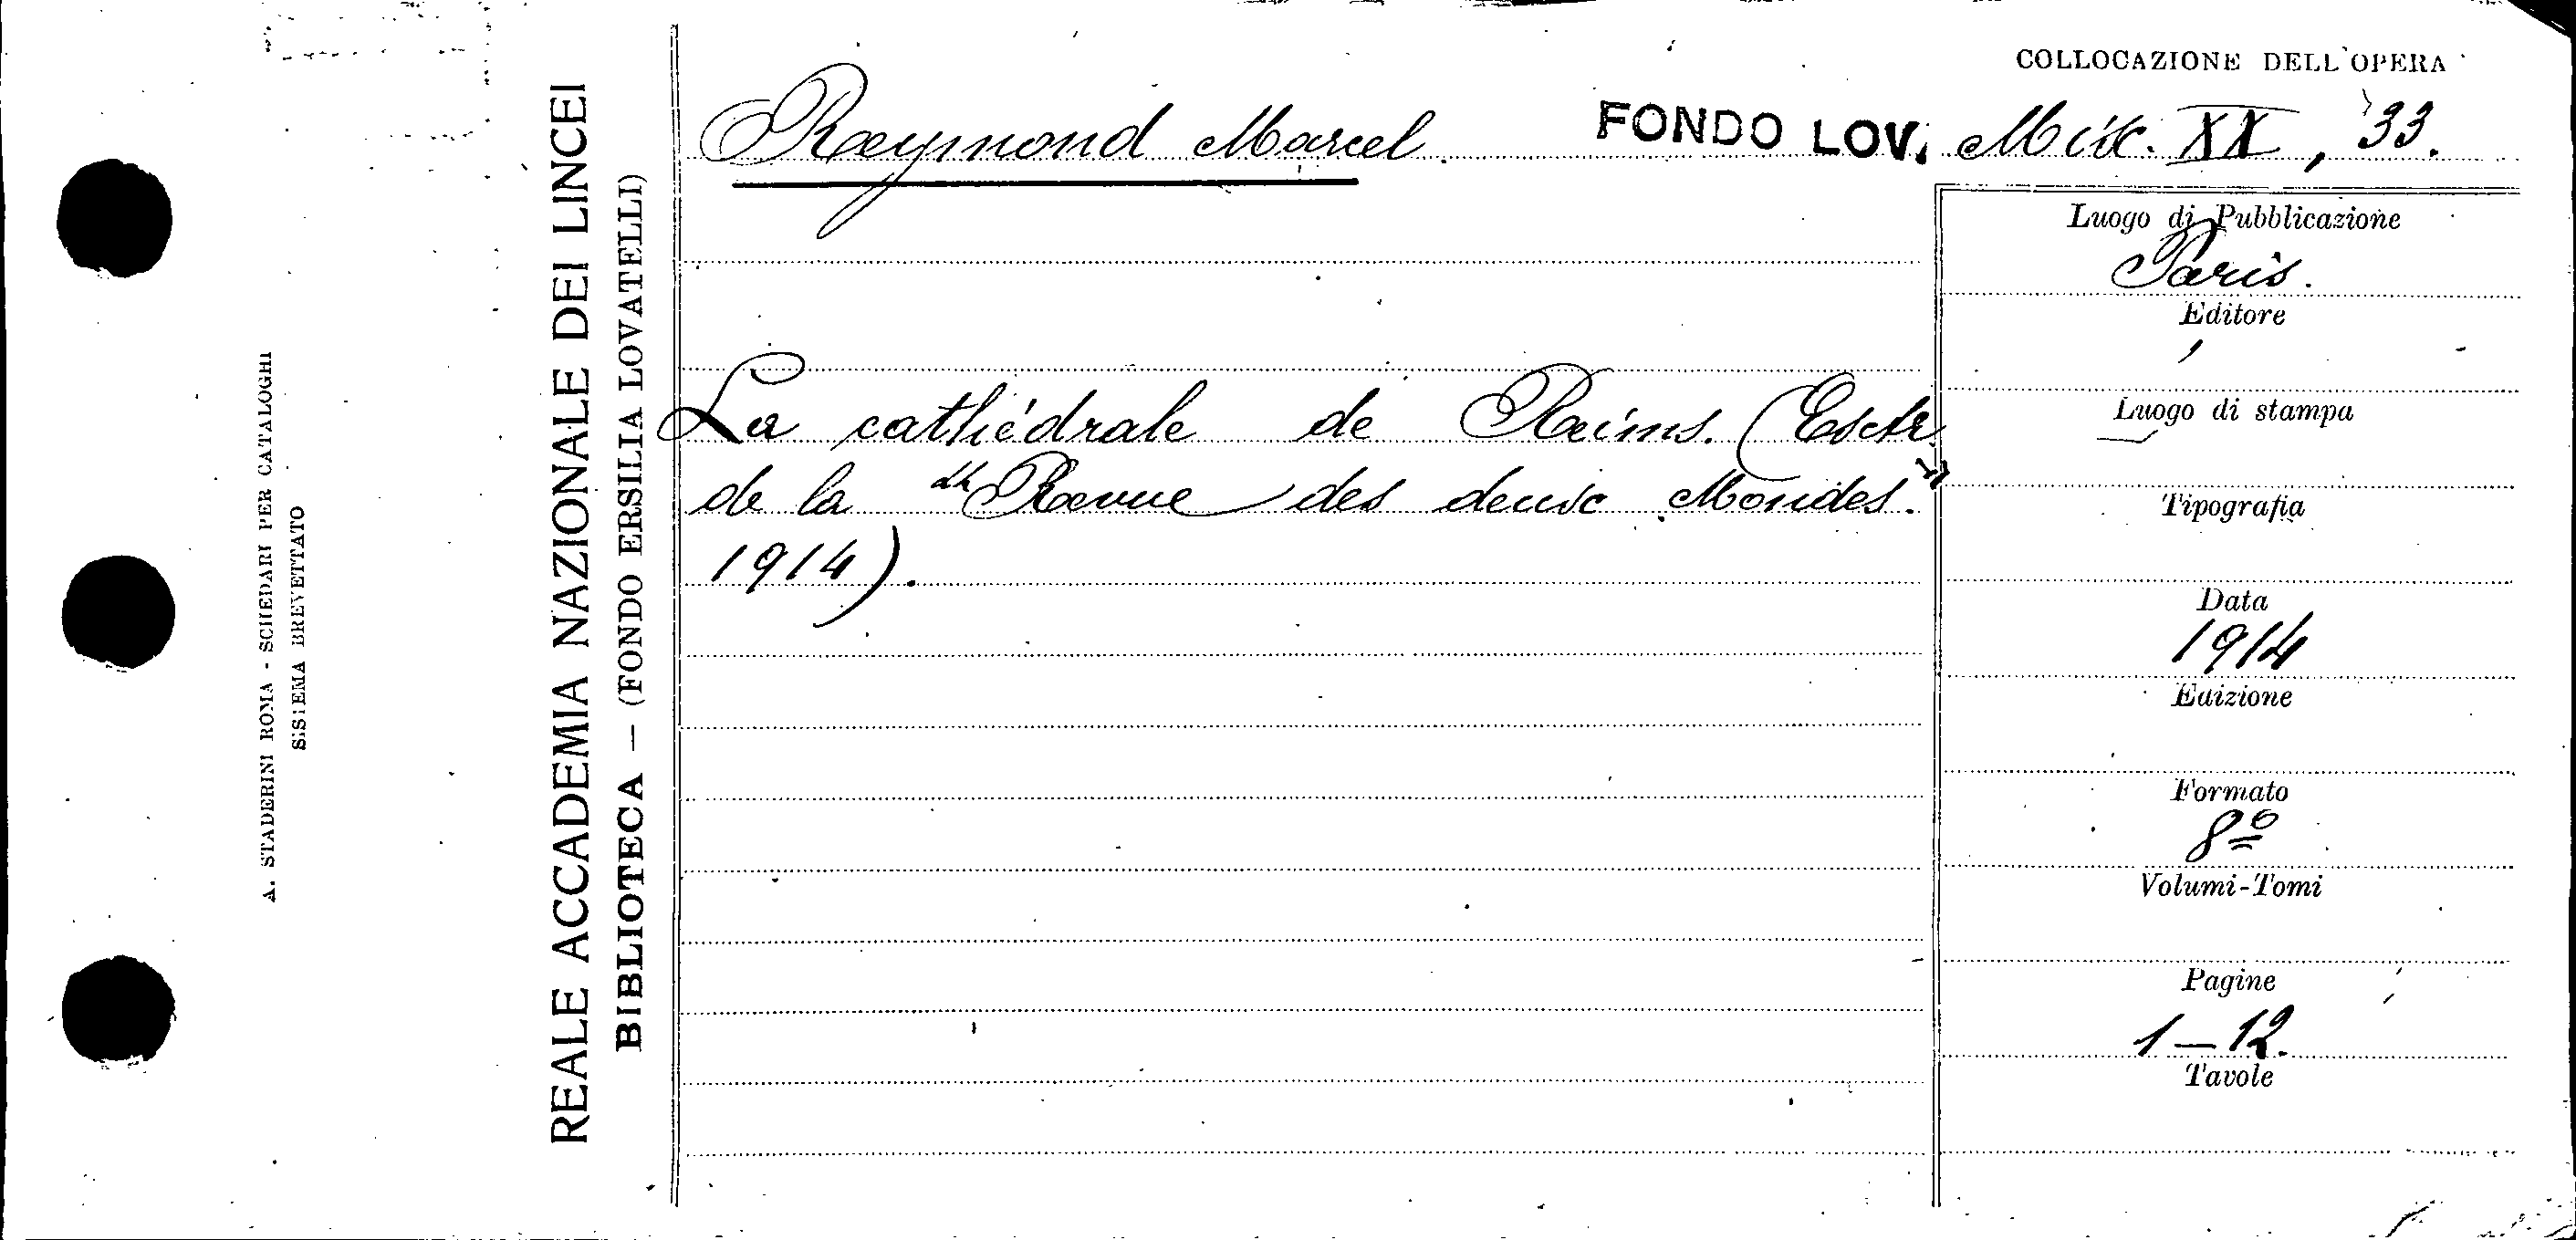 COLLOCAZIONE DELL'OPERA
Raymond Marcel.
FONDO LOV. Misc. XX, 33.
La cathédrale de Reims. (Extr.
de la "Revue des deux Mondes."
1914).
Luogo di Pubblicazione
Paris.
Editore
Luogo di stampa
Tipografia
Data
1914
Edizione
Formato
8º
Volumi-Tomi
Pagine
1-12.
Tavole
REALE ACCADEMIA NAZIONALE DEI LINCEI
BIBLIOTECA — (FONDO ERSILIA LOVATELLI)
A. STADERINI ROMA - SCHEDARI PER CATALOGHI
SISTEMA BREVETTATO